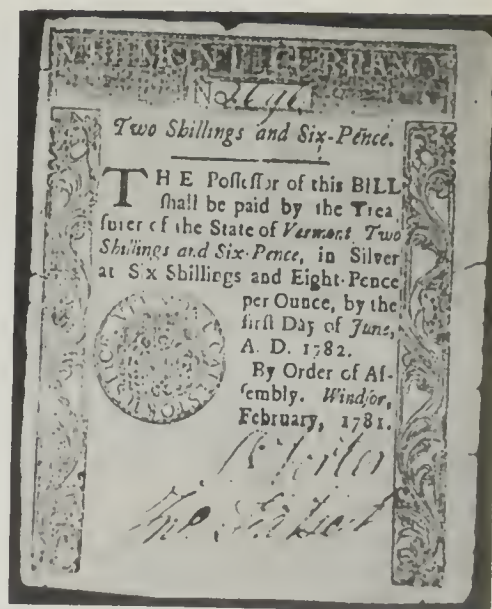 VERMONT CURRENCY
No.
Two Shillings and Six-Pence.
THE Poſſeſſor of this BILL
ſhall be paid by the Trea
ſurer of the State of Vermont Two
Shillings and Six-Pence, in Silver
at Six Shillings and Eight-Pence
per Ounce, by the
firſt Day of June,
A. D. 1782.
By Order of Aſ-
ſembly. Windſor,
February, 1781.